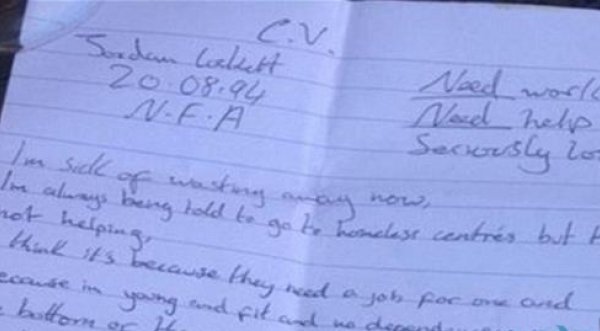 C.V.
Jordan Lockett
20.08.94
N.F.A
Need work
Need help
Seriously lo
I'm sick of wasting away now,
I'm always being told to go to homeless centres but t
not helping,
think it's because they need a job for one and
ecause im young and fit and no depend
bottom of the